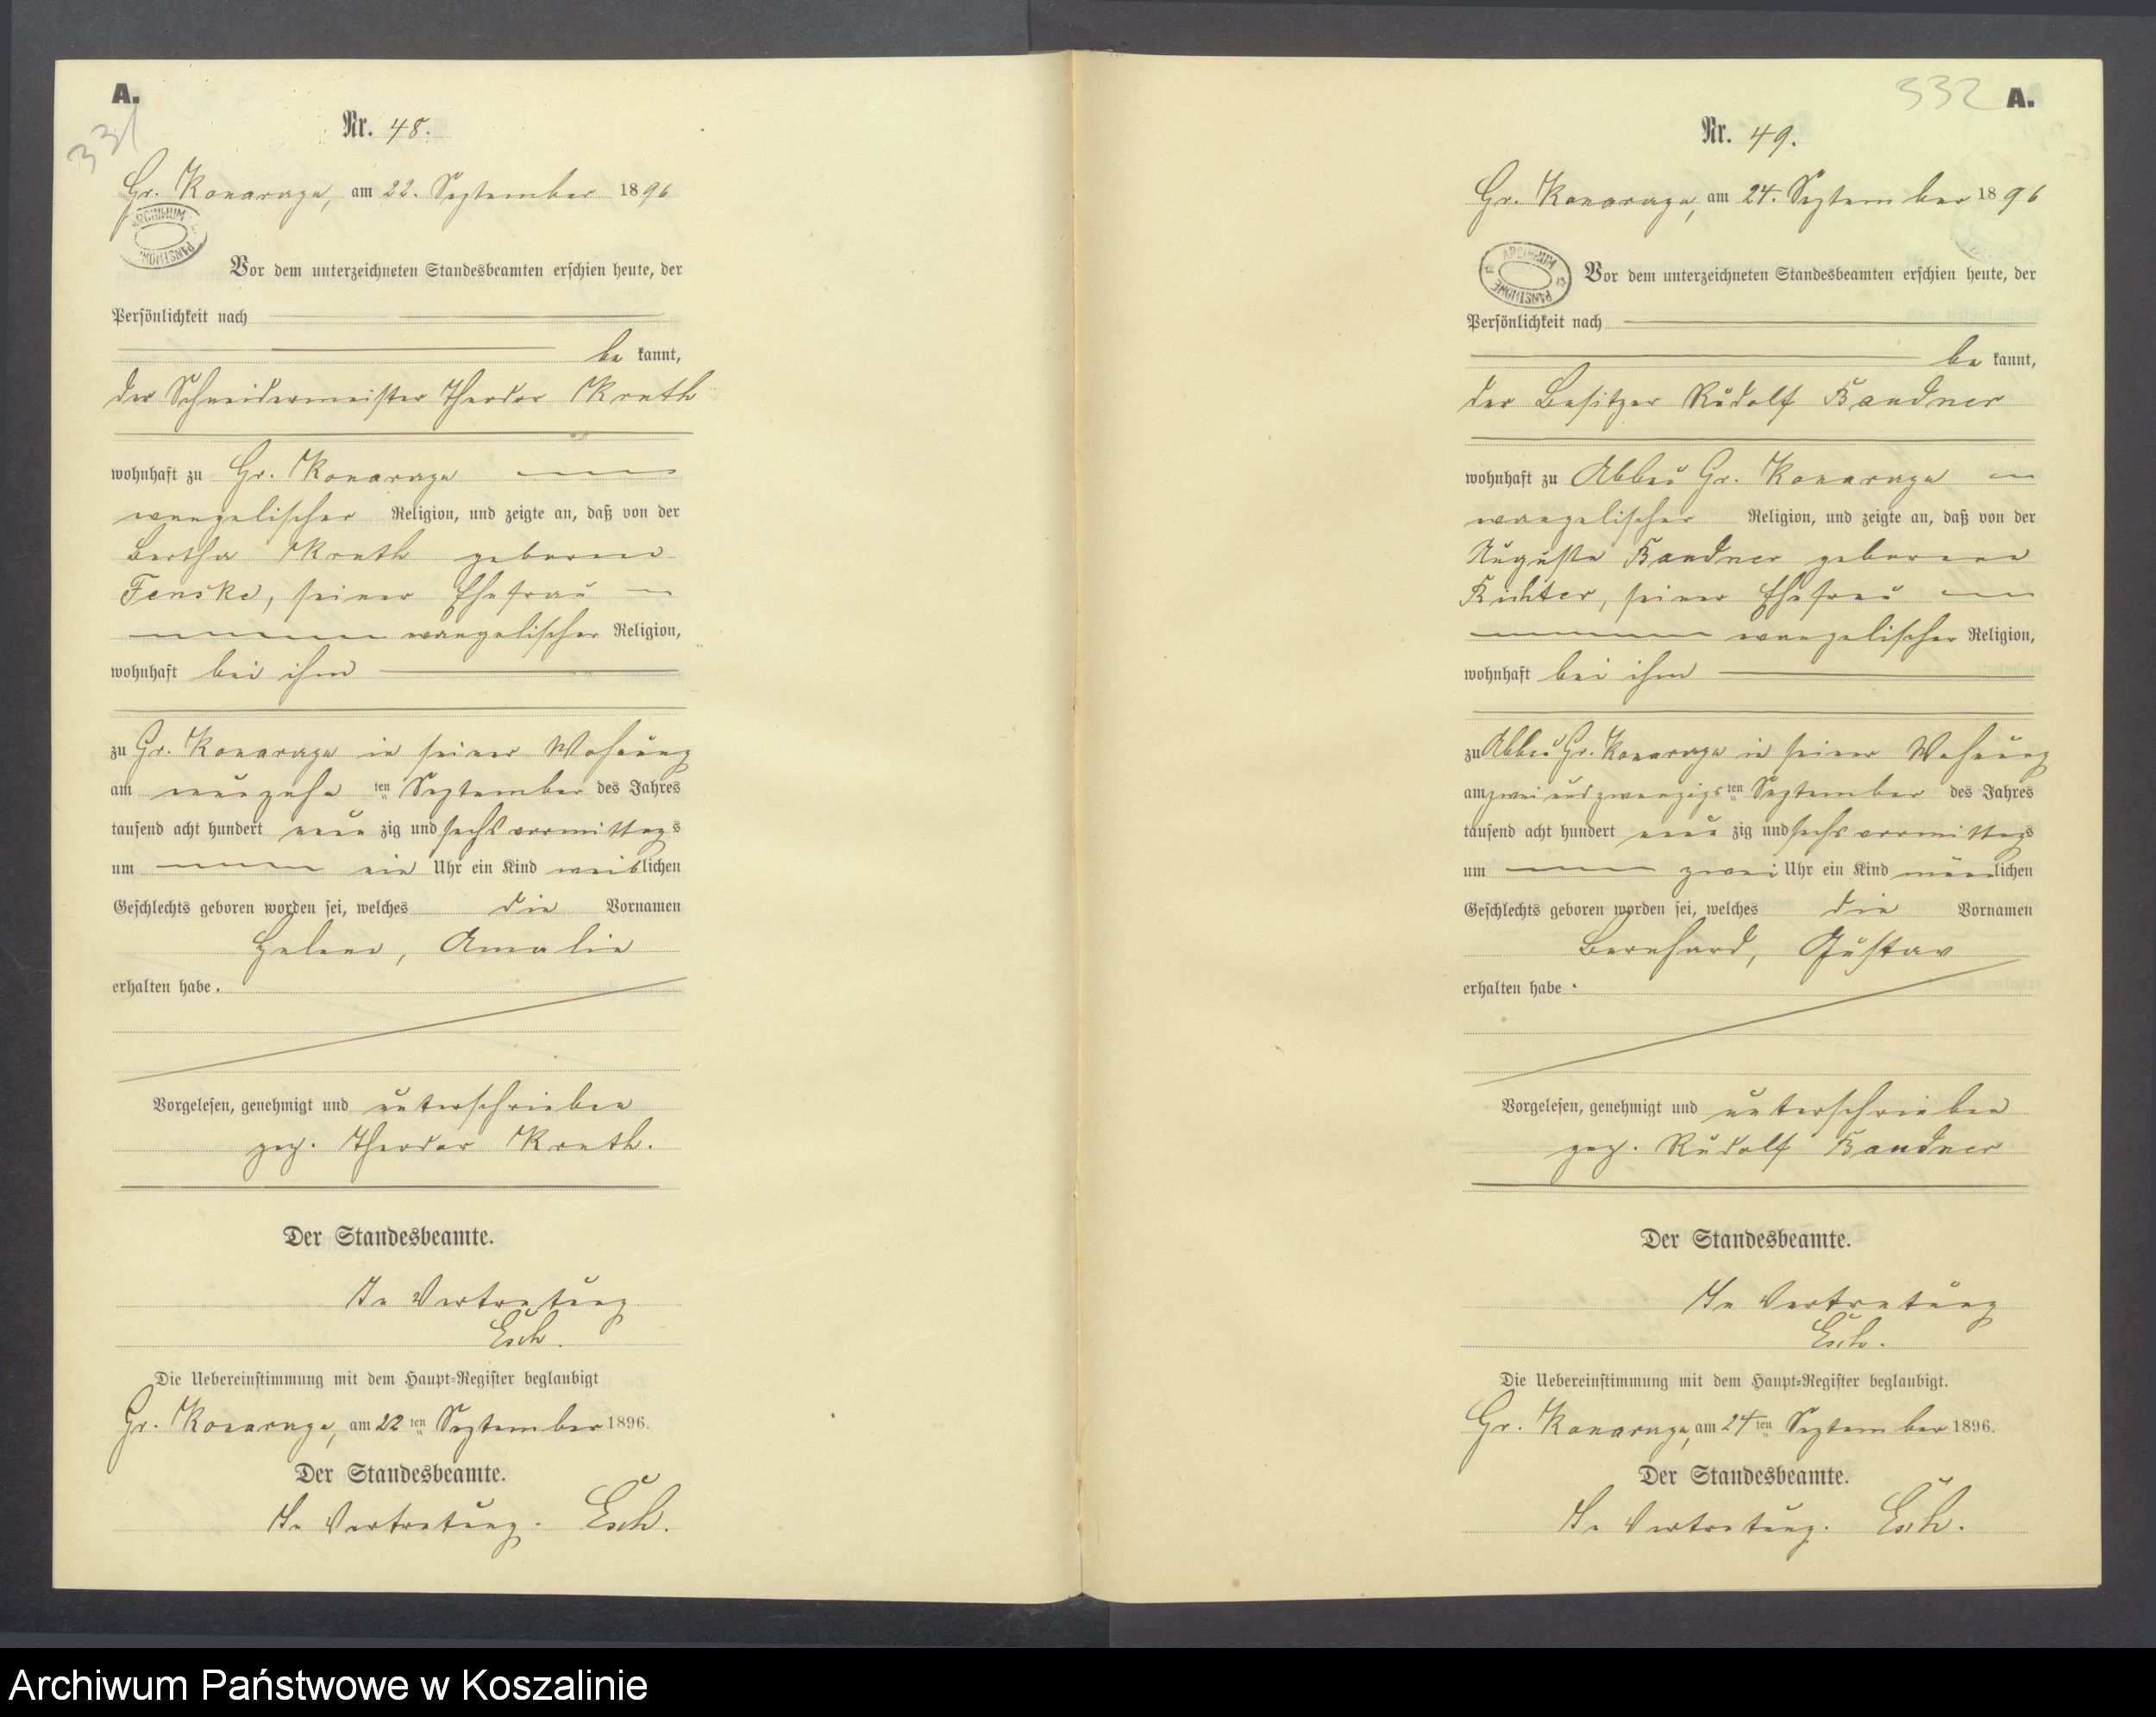 A.
331
Nr. 48.
Gr. Konarzyn, am 22. September 1896
ARCHIWUM PAŃSTWOWE
Vor dem unterzeichneten Standesbeamten erschien heute, der
Persönlichkeit nach
be kannt,
der Schneidermeister Theodor
wohnhaft zu Gr. Konarzyn
evangelischer Religion, und zeigte an, daß von der
Bertha geborene
Fenske, seiner Ehefrau
evangelischer Religion,
wohnhaft bei ihm
zu Gr. Konarzyn in seiner Wohnung
am neunzehn ten September des Jahres
tausend acht hundert neun zig und sechs vormittags
um ein Uhr ein Kind weiblichen
Geschlechts geboren worden sei, welches die Vornamen
Helene, Amalie
erhalten habe.
Vorgelesen, genehmigt und unterschrieben
gez. Theodor
Der Standesbeamte.
In Vertretung
Esch.
Die Uebereinstimmung mit dem Haupt-Register beglaubigt
Gr. Konarzyn, am 22 ten September 1896.
Der Standesbeamte.
In Vertretung. Esch.
332 A.
Nr. 49.
Gr. Konarzyn, am 24. September 1896
ARCHIWUM PAŃSTWOWE
Vor dem unterzeichneten Standesbeamten erschien heute, der
Persönlichkeit nach
be kannt,
der Besitzer Rudolf Bandner
wohnhaft zu Abbau Gr. Konarzyn
evangelischer Religion, und zeigte an, daß von der
Auguste Bandner geborene
Richter, seiner Ehefrau
evangelischer Religion,
wohnhaft bei ihm
zu Abbau Gr. Konarzyn in seiner Wohnung
am zwei und zwanzigs ten September des Jahres
tausend acht hundert neun zig und sechs vormittags
um zwei Uhr ein Kind männlichen
Geschlechts geboren worden sei, welches die Vornamen
Bernhard, Gustav
erhalten habe.
Vorgelesen, genehmigt und unterschrieben
gez. Rudolf Bandner
Der Standesbeamte.
In Vertretung
Esch.
Die Uebereinstimmung mit dem Haupt-Register beglaubigt.
Gr. Konarzyn, am 24 ten September 1896.
Der Standesbeamte.
In Vertretung. Esch.
Archiwum Państwowe w Koszalinie